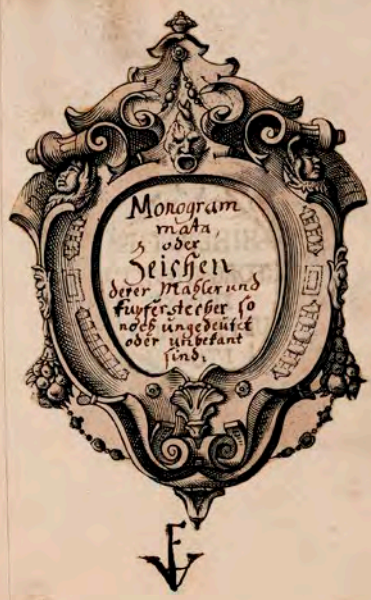 Monogram
mata,
oder
Zeichen
derer Mahler und
Kupferstecher so
noch ungedeutet
oder unbekant
sind.